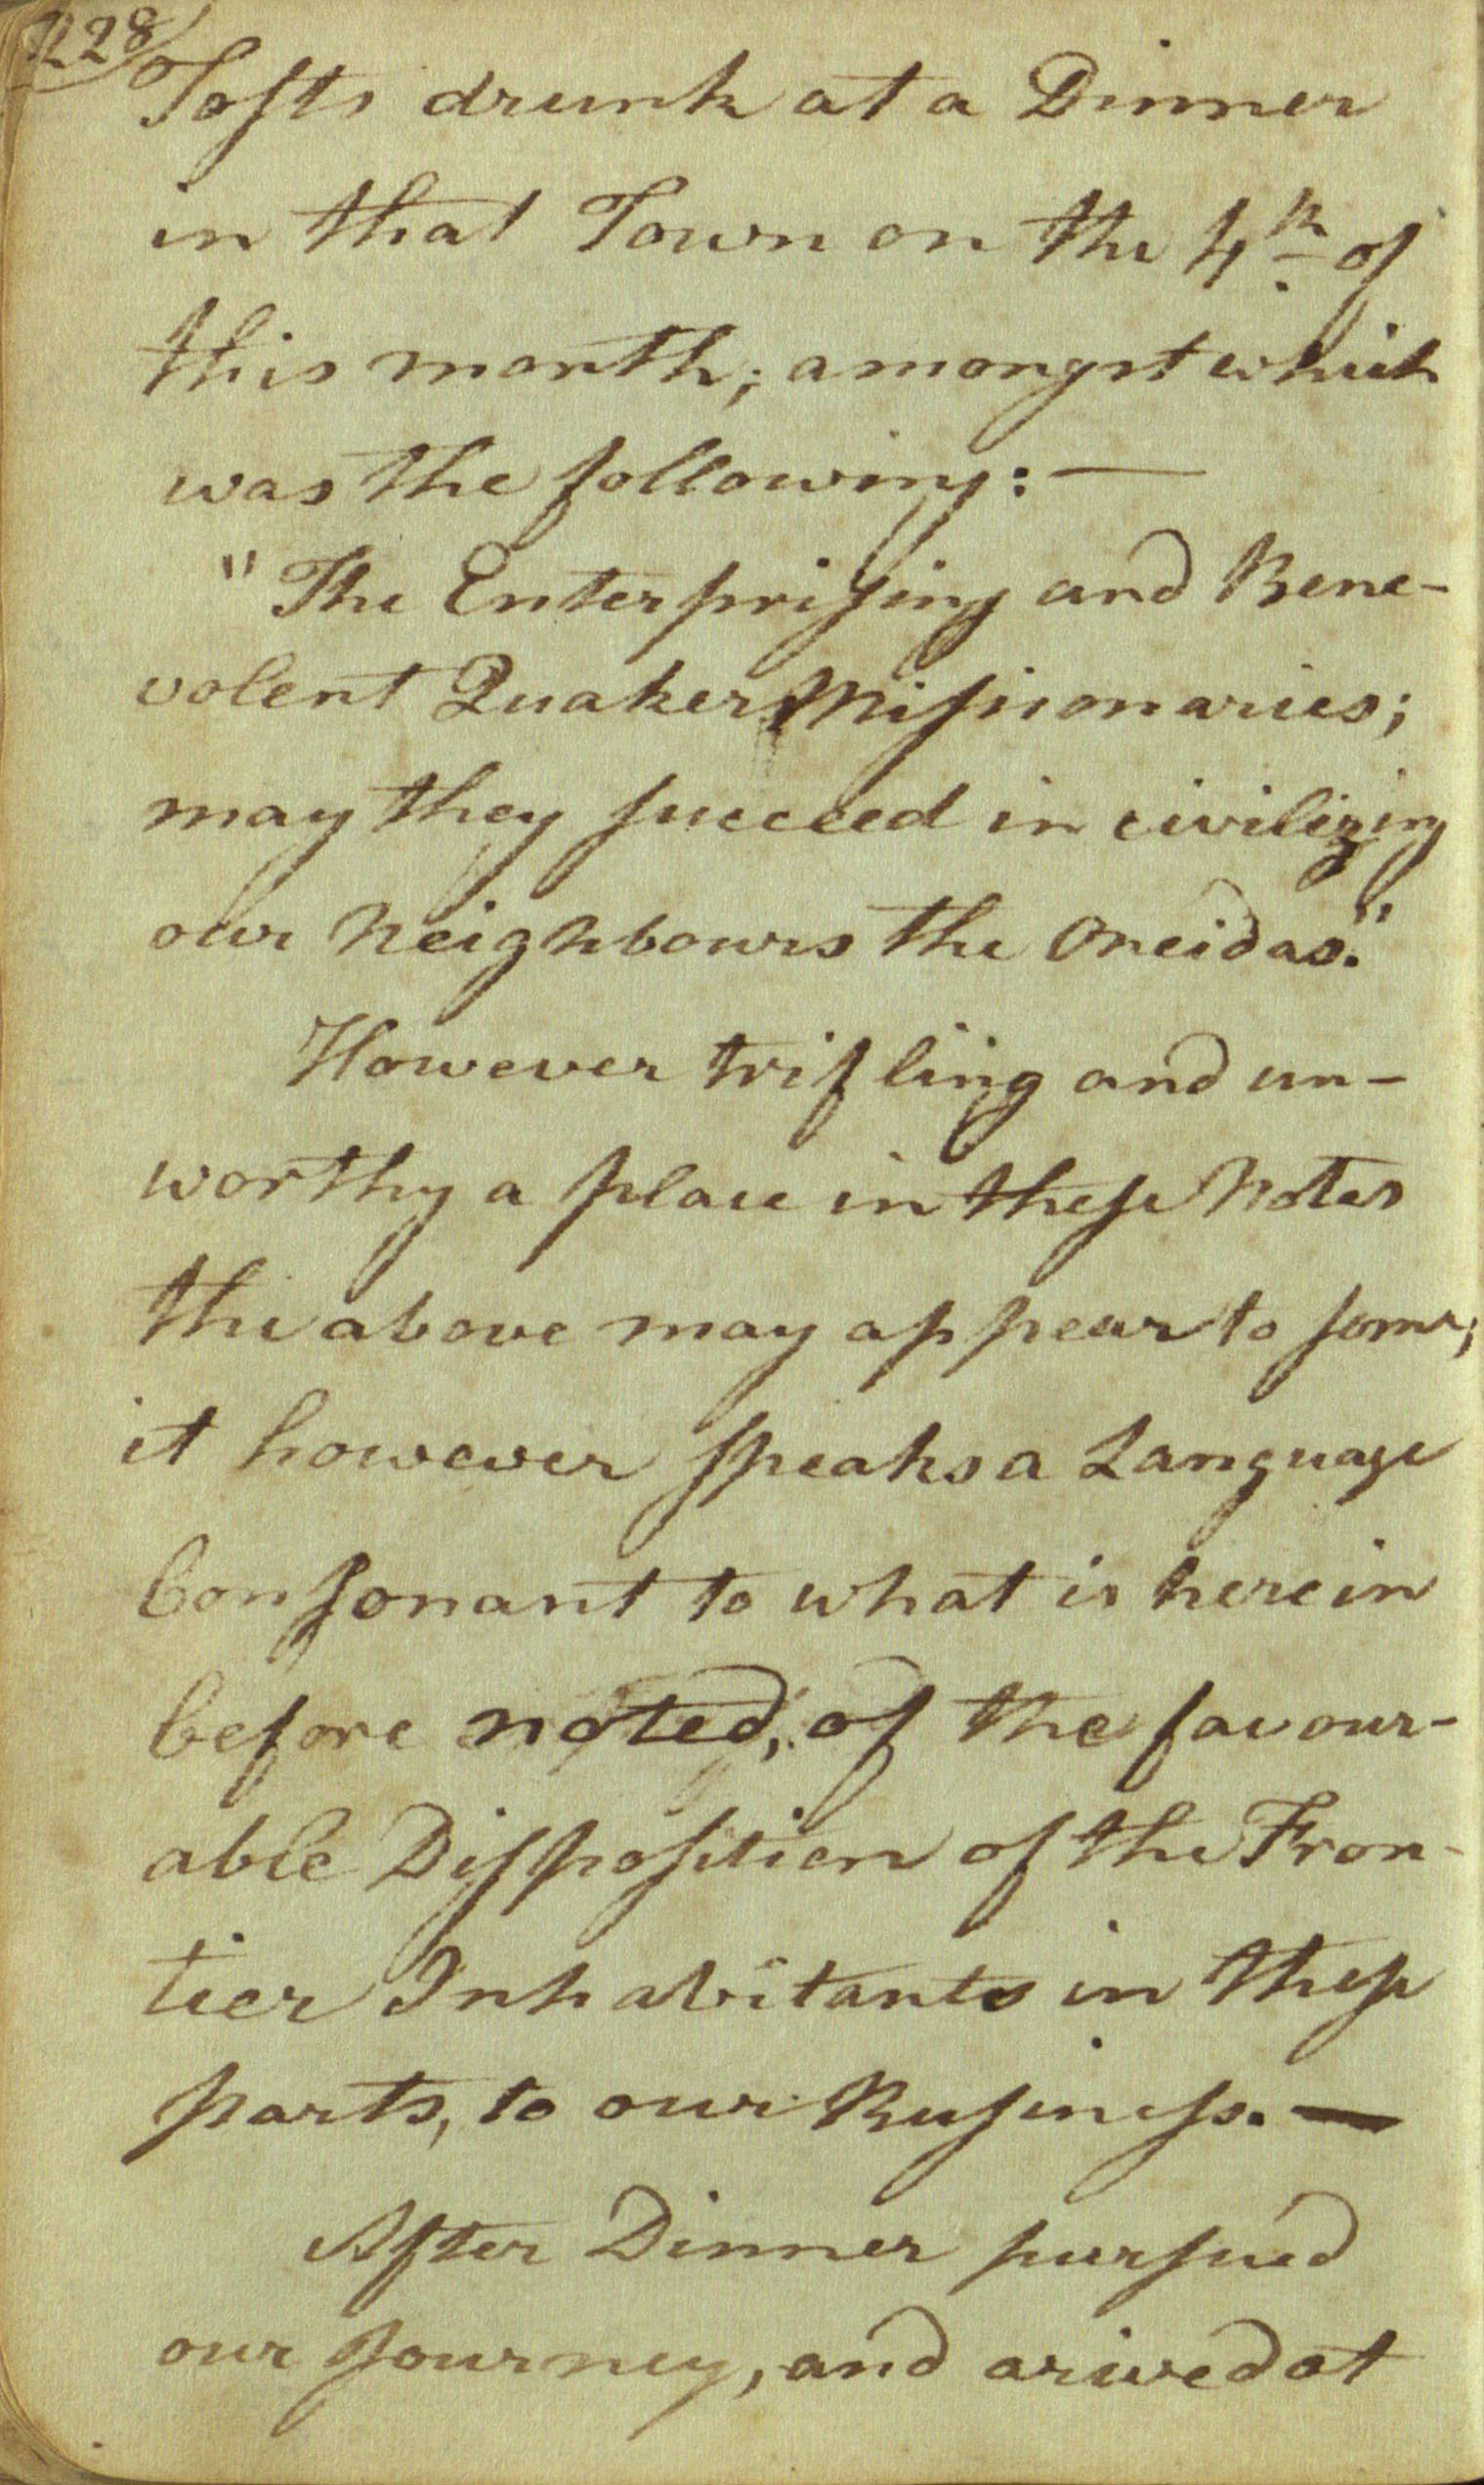 228
Tosts drunk at a Dinner
in that Town on the 4th of
this month; amongst which
was the following: —
"The Enterprising and Bene-
volent Quaker Missionaries;
may they succeed in civilizing
our Neighbours the Oneidas."
However trifling and un-
worthy a place in these Notes
the above may appear to some;
it however speaks a Language
Consonant to what is herein
before noted, of the favour-
able Disposition of the Fron-
tier Inhabitants in these
parts, to our Business. —
After Dinner pursued
our Journey, and arived at